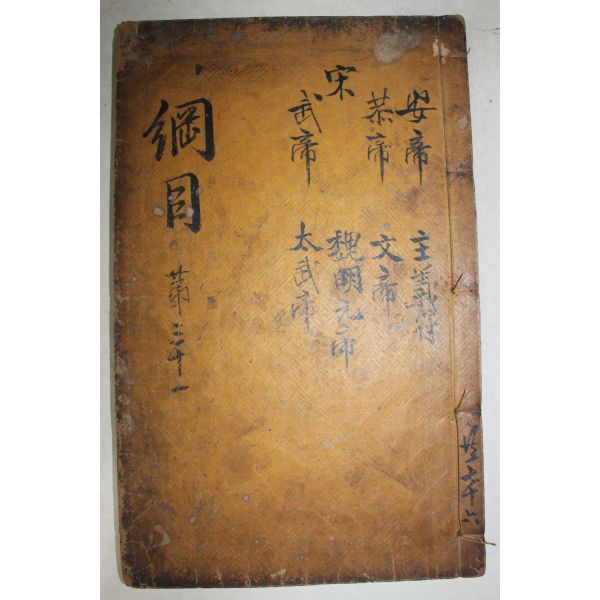 安帝
恭帝
宋
武帝
主義符
文帝
魏明元帝
太武帝
綱目
第二十一
共七十六